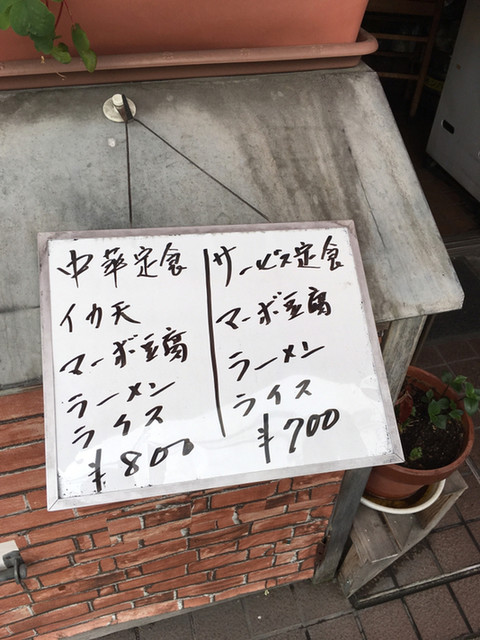 中華定食
イカ天
マーボ豆腐
ラーメン
ライス
¥800
サービス定食
マーボ豆腐
ラーメン
ライス
¥700